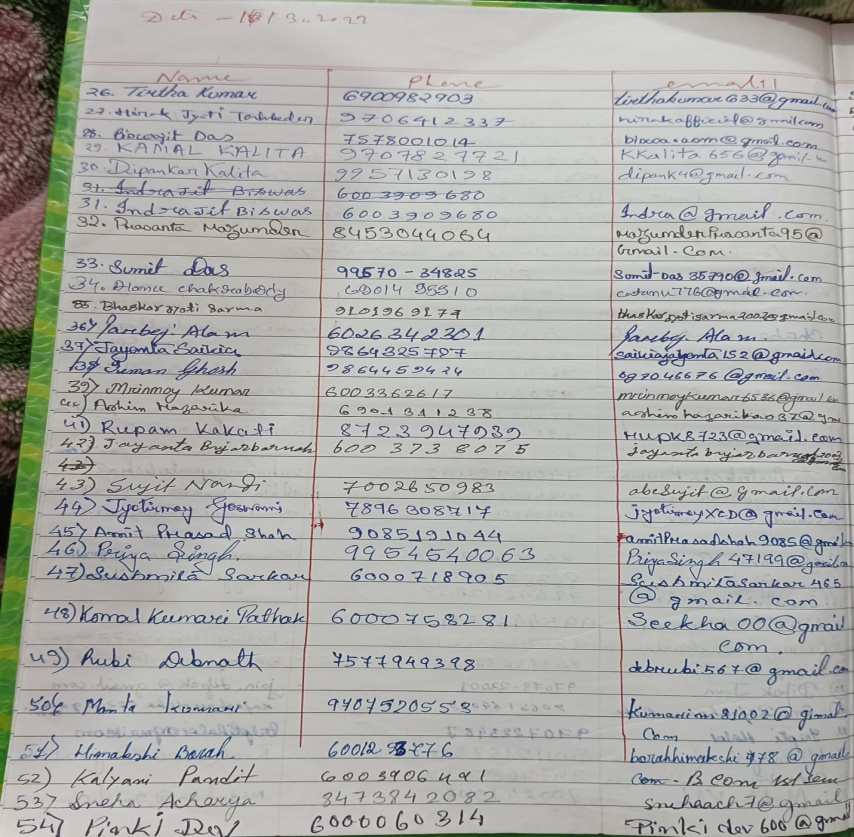 Name Phone email
26. Tirtha Kumar 6900982903 tirthakumar633@gmail.com
27. Hirak Jyoti 9706412337
28. Biswajit Das 7578001014
29. KAMAL KALITA 9707827721 KKalita656@gmail.
30. Dipankar Kalita 9957130198 dipank4@gmail.com
31. Indrajit Biswas 6003909680
31. Indrajit Biswas 6003909680 Indra@gmail.com
32. Prasanta Mazumder 8453044064 MazumderPrasanta95@
Gmail.Com.
33. Sumit Das 99570-34825 Sumit Das 35790@gmail.com
34. chakraborty
35. Bhaskar Jyoti Sarma 9101969174
36) Parbej Alam 6026342301 Parbej Alam
37) Jayanta Saikia 9864325797
38) Suman Ghosh 9864459424
39) Mrinmoy Kumar 6003362617 mrinmoykumar6536@gmail
Ashim Hazarika 6901311238
41) Rupam Kakati 8723947939 rupk8723@gmail.com
42) Jayanta Bujarbaruah 600 373 8075
43)
43) Sujit Nandi 7002650983 abcsujit@gmail.com
44) Jyotirmoy Goswami 7896308717 jyotirmoyXCD@gmail.com
45) Amit Prasad Shah 9085191044 amitPrasadshah9085@gmail
46) Priya Singh. 9954540063 PriyaSingh47199@gmail
47) Sushmita Sarkar 6000718905 Sushmitasarkar465
@gmail.com
48) Komal Kumari Pathak 6000758281 Seekha00@gmail
com.
49) Rubi Debnath 7577949398 debrubi567@gmail.co
50) Kumari 9707520553 Kumarim81002@gmail
Com
51) Himakshi Borah. borahhimakshi978@gmail
52) Kalyani Pandit 6003906491 Com - B Com 1st sem
53) Sneha Acharya 8473842082 snehaach7@gmail
54) Pinki Dev 6000060314 Pinki dev600@gmail